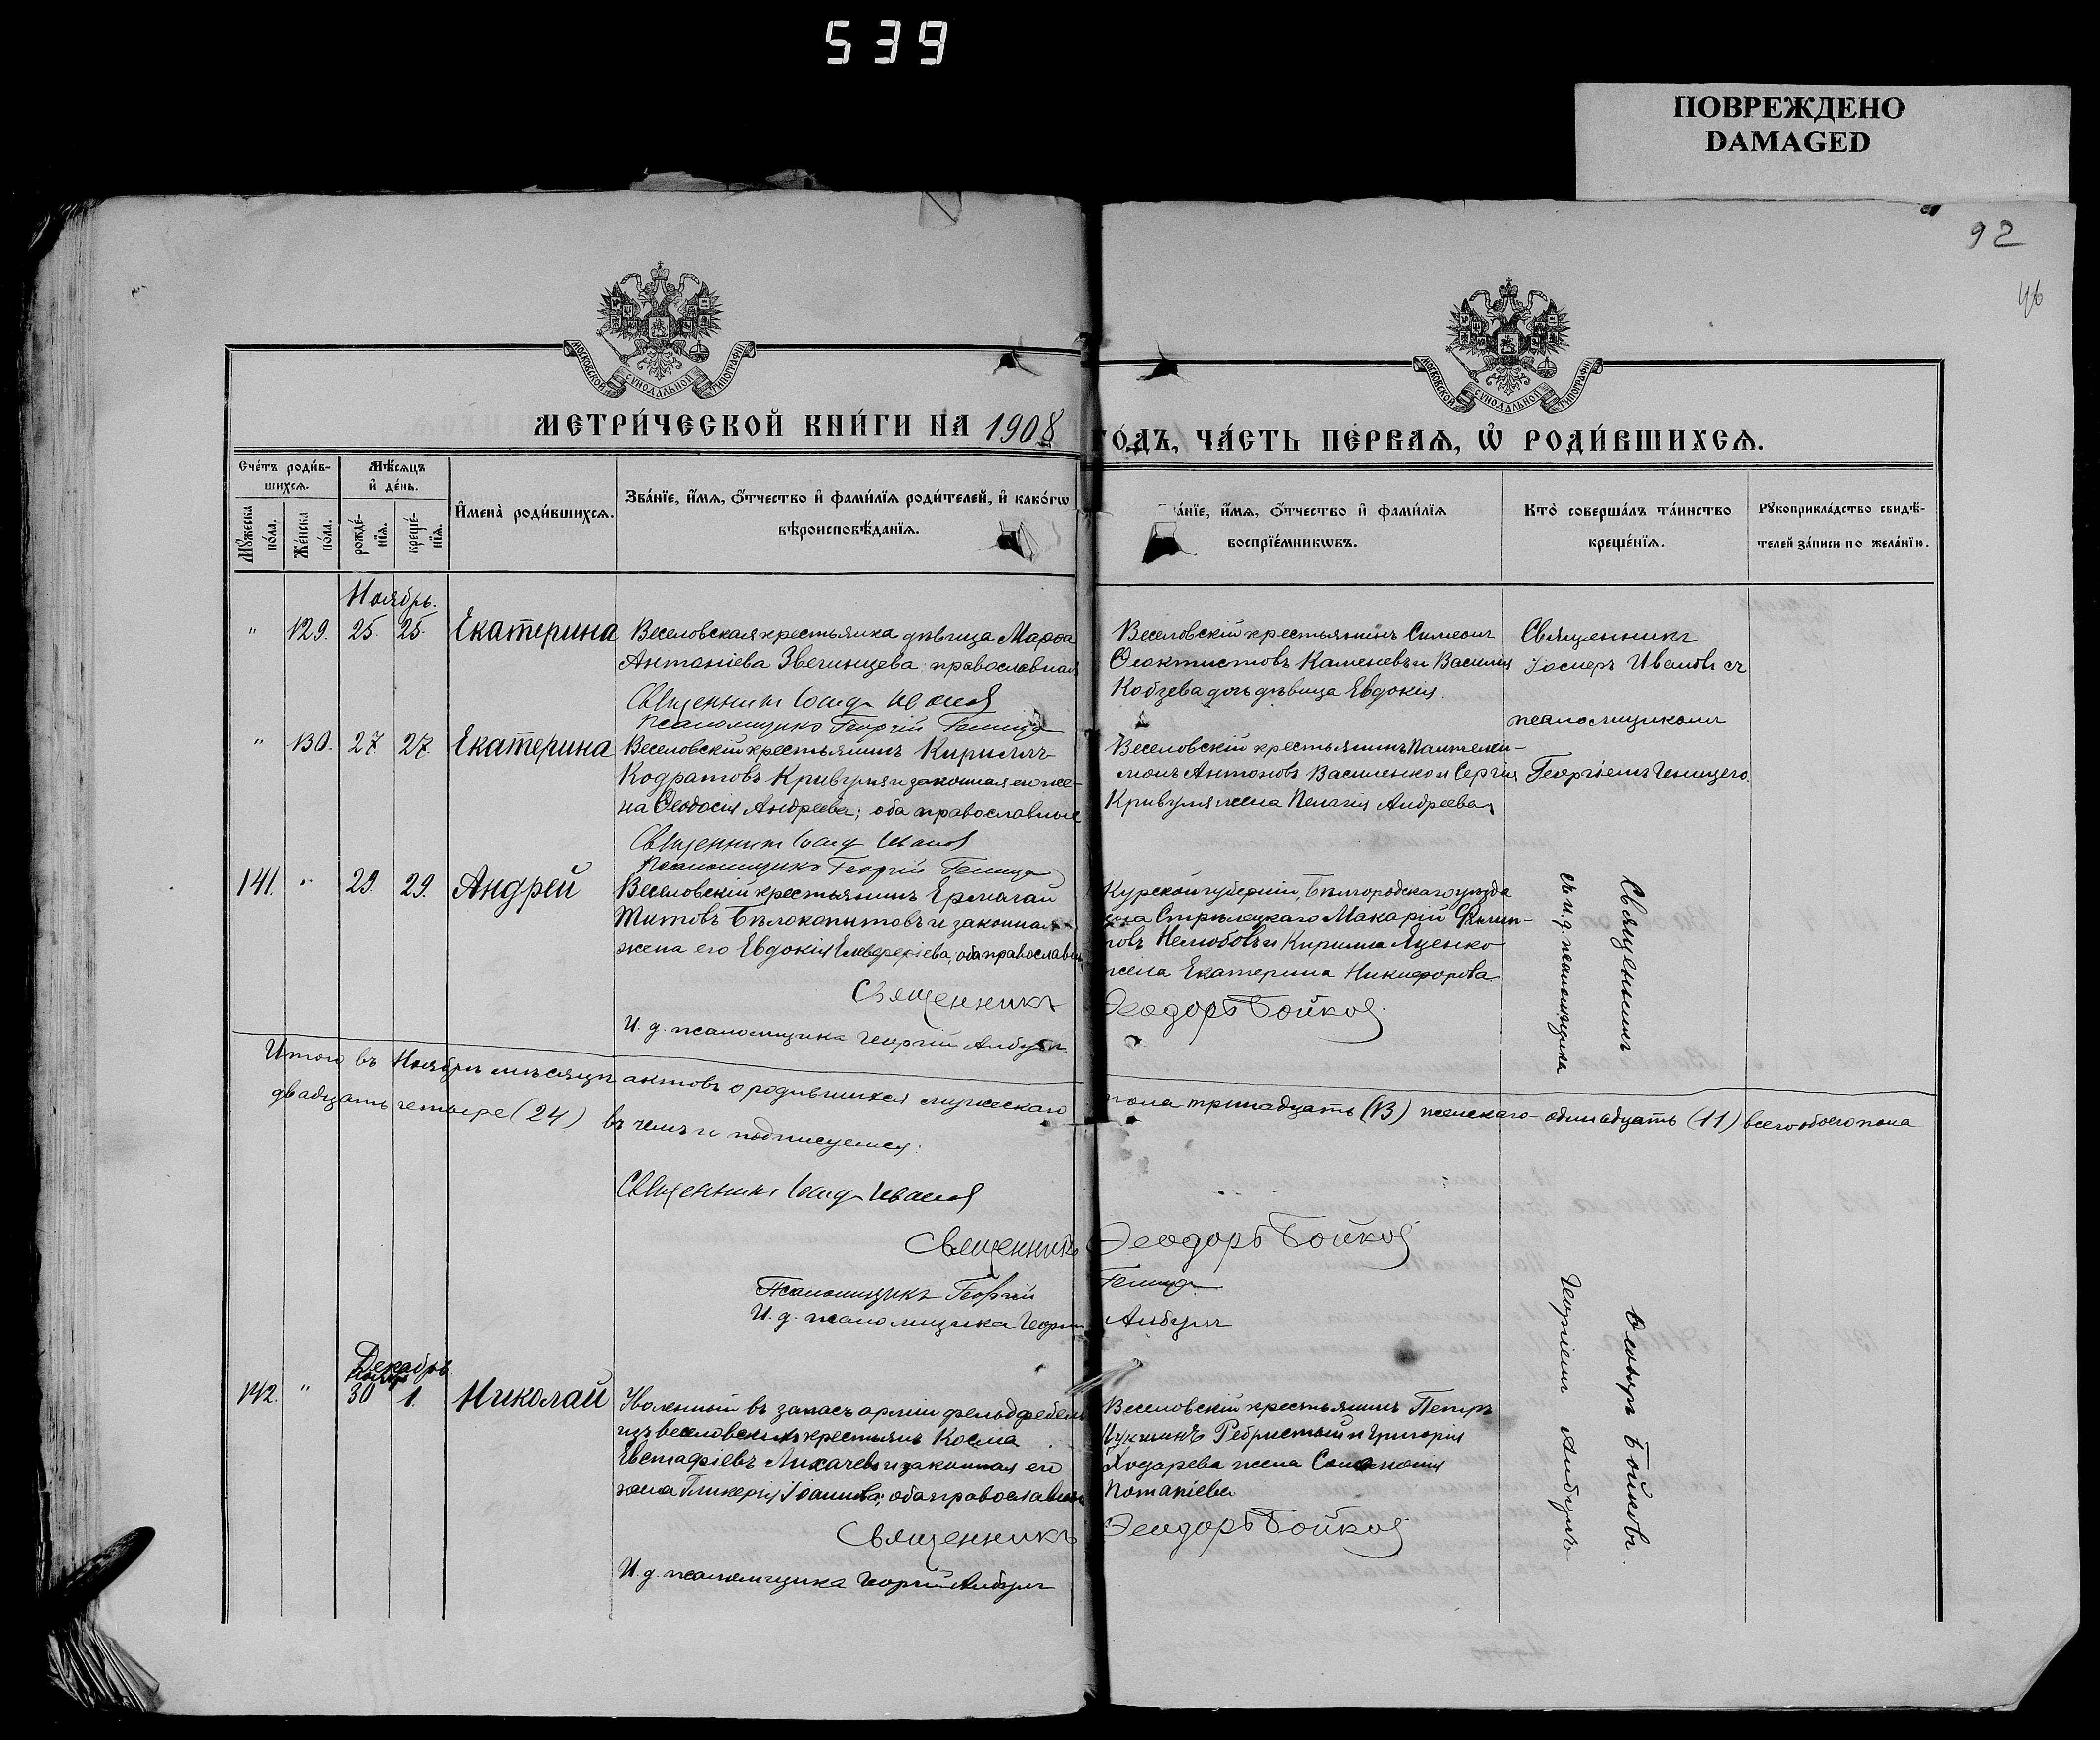 539
ПОВРЕЖДЕНО
DAMAGED
92
МОСКОВСКОЙ СѴНОДАЛЬНОЙ ТИПОГРАФІИ
МОСКОВСКОЙ СѴНОДАЛЬНОЙ ТИПОГРАФІИ
МЕТРИ́ЧЕСКОЙ КНИ́ГИ НА 1908
ГО́ДЪ, ЧА́СТЬ ПЕ́РВАѦ, Ѡ҆ РОДИ́ВШИХСѦ.
Сче́тъ роди́в-
шихсѧ.
Мѣ́сѧцъ
и҆ де́нь.
Мꙋ́жеска по́ла.
Же́нска по́ла.
рожде́-
нїѧ.
креще́-
нїѧ.
И҆мена̀ роди́вшихсѧ.
Зва́нїе, и҆́мѧ, ѻ҆́тчество и҆ фами́лїѧ роди́телей, и҆ како́гѡ
вѣроисповѣ́данїѧ.
а́нїе, и҆́мѧ, ѻ҆́тчество и҆ фами́лїѧ
воспрїе́мникѡвъ.
Кто̀ соверша́лъ та́инство
креще́нїѧ.
Рꙋкоприкла́дство свидѣ́-
телей за́писи по жела́нїю.
Ноябрь.
" 129. 25. 25. Екатерина
Веселовская крестьянка дѣвица Марѳа
Антоніева Звегинцева православная
Священникъ Іоаннъ Ивановъ
Псаломщикъ Георгій
Веселовскій крестьянинъ Симеонъ
Ѳеоктистовъ Каменевъ и Василія
Кобзева дочь дѣвица Евдокія.
Священникъ
Ивановъ съ
псаломщикомъ
" 130. 27. 27. Екатерина
Веселовскій крестьянинъ Кириллъ
Кодратовъ Кривуля и законная его же-
на Ѳеодосія Андреева; оба православные
Священникъ Іоаннъ Ивановъ
Псаломщикъ Георгій
Веселовскій крестьянинъ Пантелеи-
монъ Антоновъ Василенко и Сергія
Кривуля жена Пелагія Андреева
Георгіемъ
141. " 29. 29. Андрей
Веселовскій крестьянинъ Ермолай
Титовъ Бѣлокопытовъ и законная
жена его Евдокія Елевферіева; оба православн.
Священникъ
И. д. псаломщика Георгій Анбулъ
Курской губерніи, Бѣлгородскаго уѣзда
Стрѣлецкаго Макарій Филип-
повъ Нелюбовъ и Кирилла Яценко
жена Екатерина Никифорова
Ѳеодоръ Бойковъ
Священникъ
съ и. д. псаломщика
Итого въ Ноябрѣ мѣсяцѣ актовъ о родившихся мужескаго
пола тринадцать (13) женскаго одинадцать (11) всего обоего пола
двадцать четыре (24) въ чемъ и подписуемся:
Священникъ Іоаннъ Ивановъ
Священникъ Ѳеодоръ Бойковъ
Псаломщикъ Георгій
И. д. псаломщика Георгій Анбулъ
Декабрь.
Ноябр
142. " 30 1. Николай
Уволенный въ запасъ арміи фельдфебель
изъ веселовскихъ крестьянъ Косма
Евстафіевъ Лихачевъ и законная его
жена Гликерія Іоаннова; оба православные
Священникъ
И. д. псаломщика Георгій Анбулъ
Веселовскій крестьянинъ Петръ
Ребристый и Григорія
жена Соломонія
Потапіева
Ѳеодоръ Бойковъ
Ѳеодоръ Бойковъ.
Георгіемъ Анбулъ